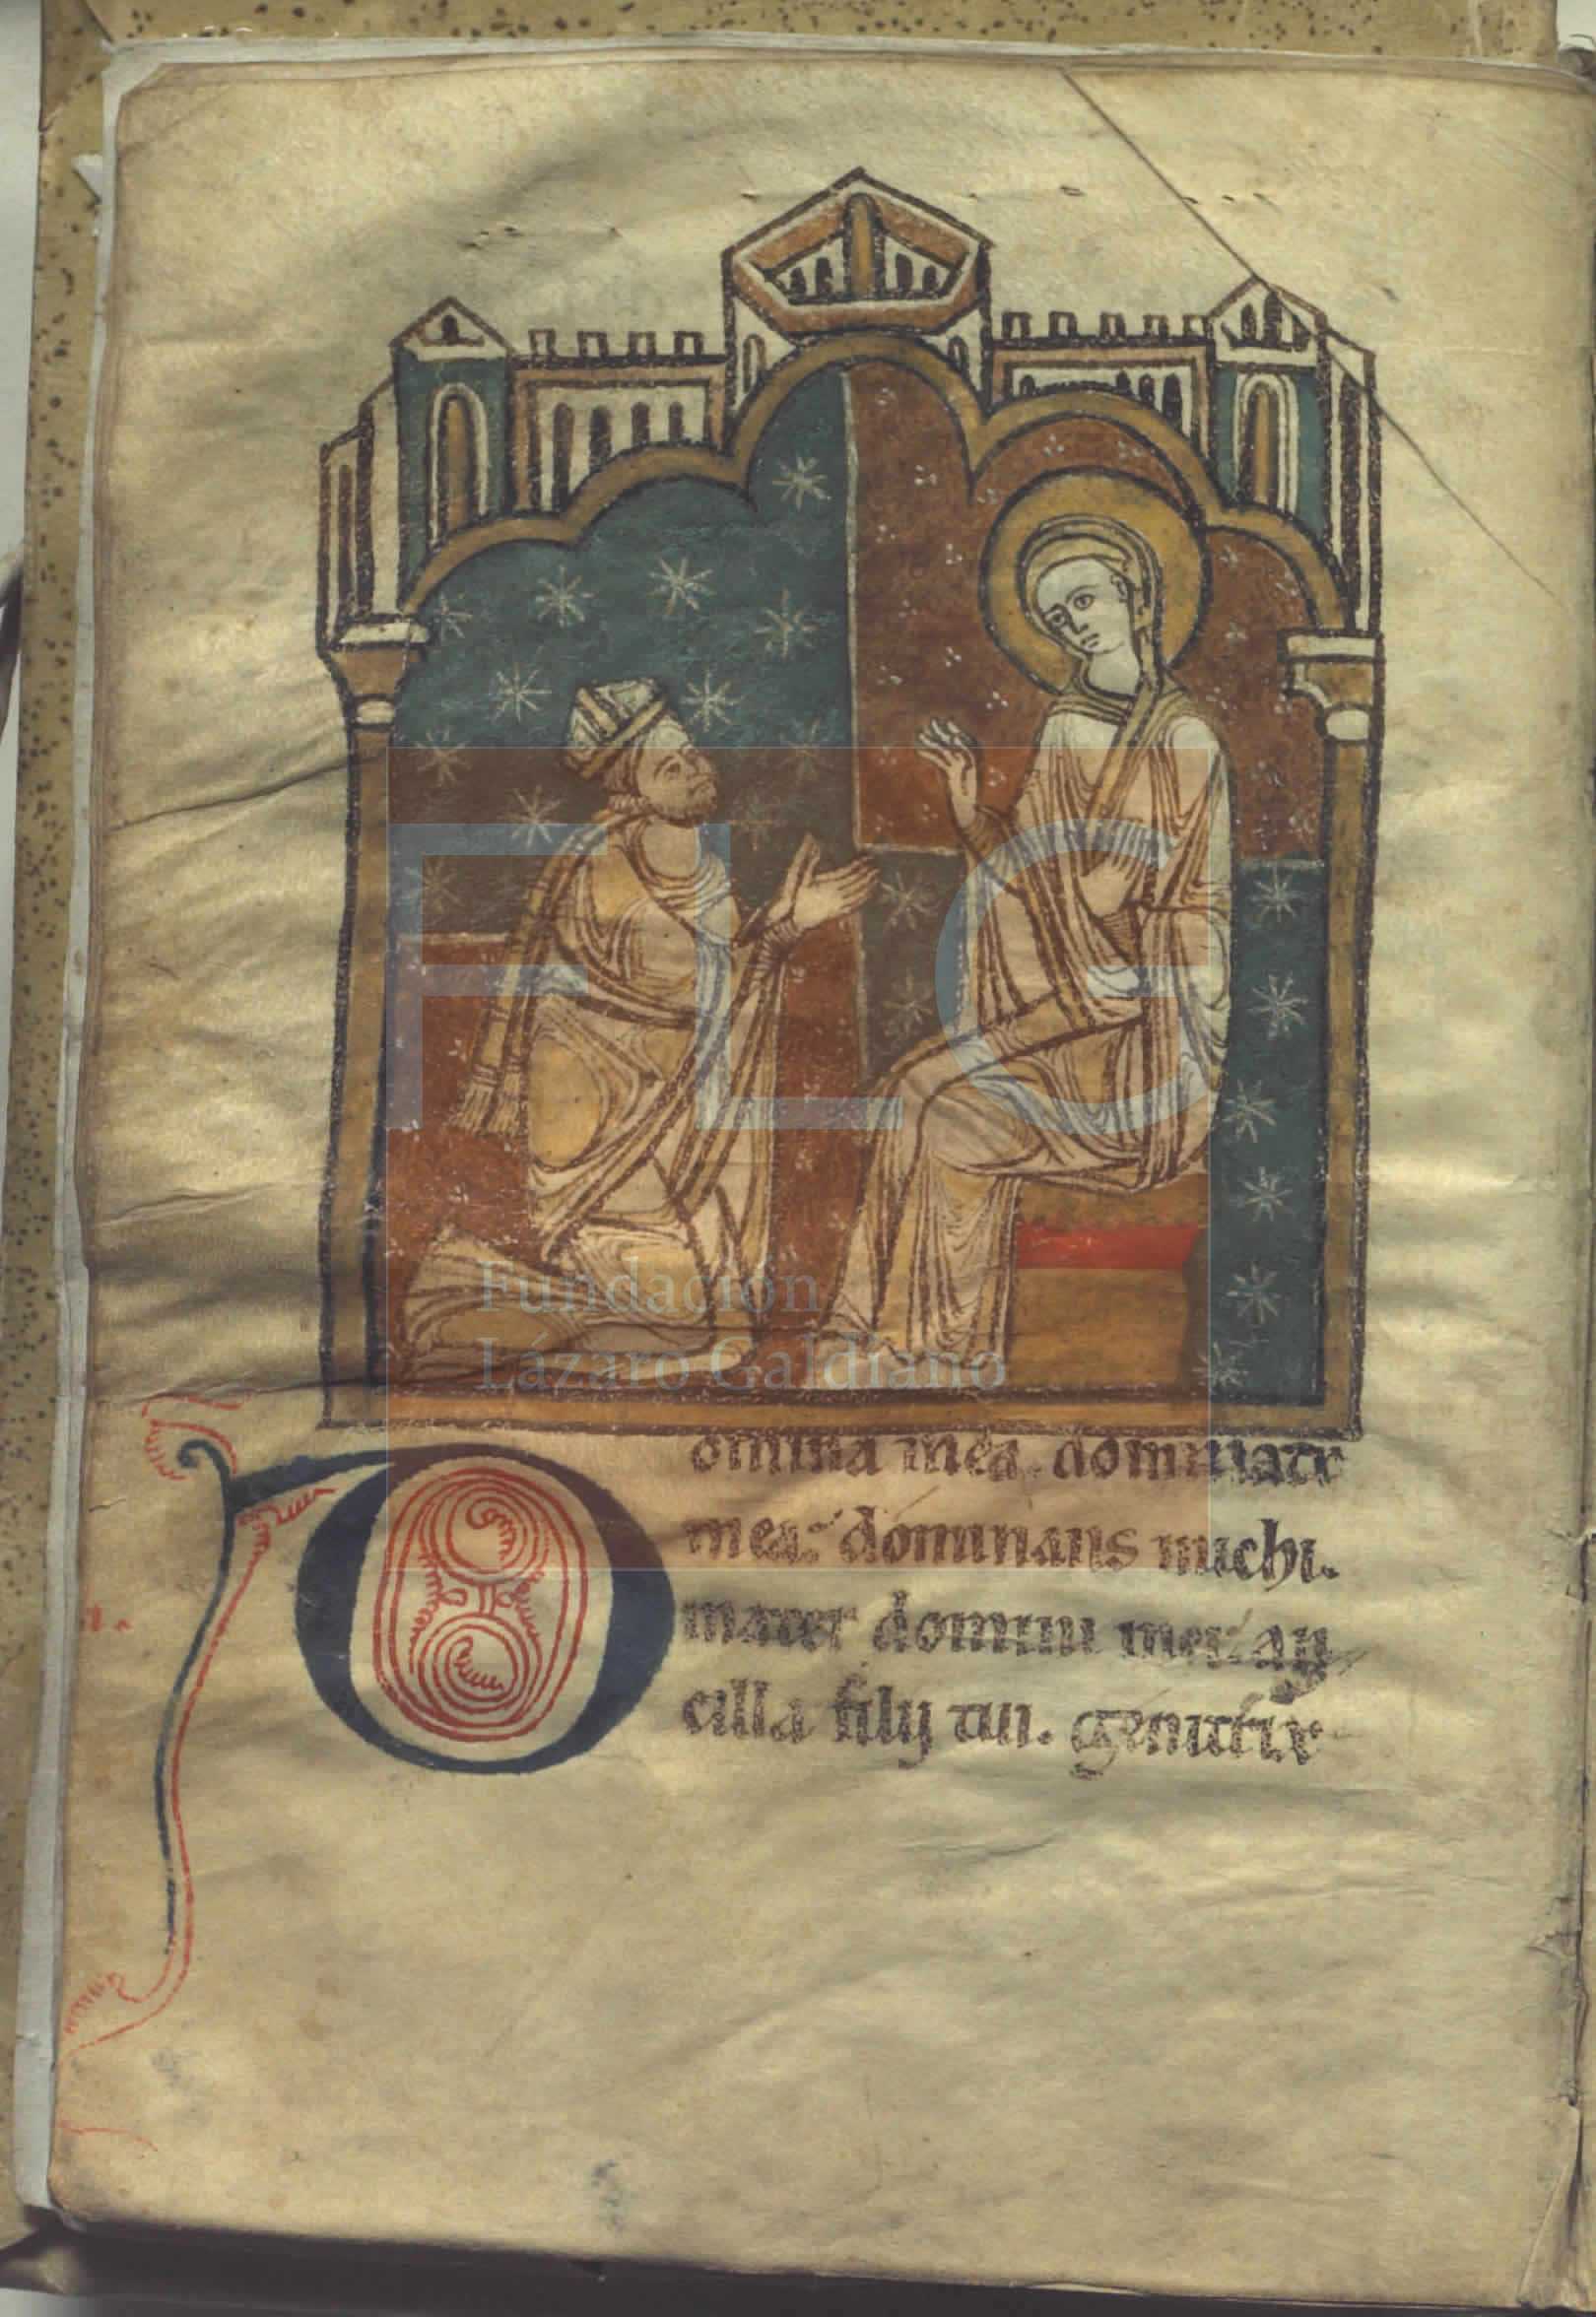 FLG
Fundación
Lázaro Galdiano
Domina mea. dominatr
mea: dominans michi.
mater domini mei: an
cilla filij tui. genitrix